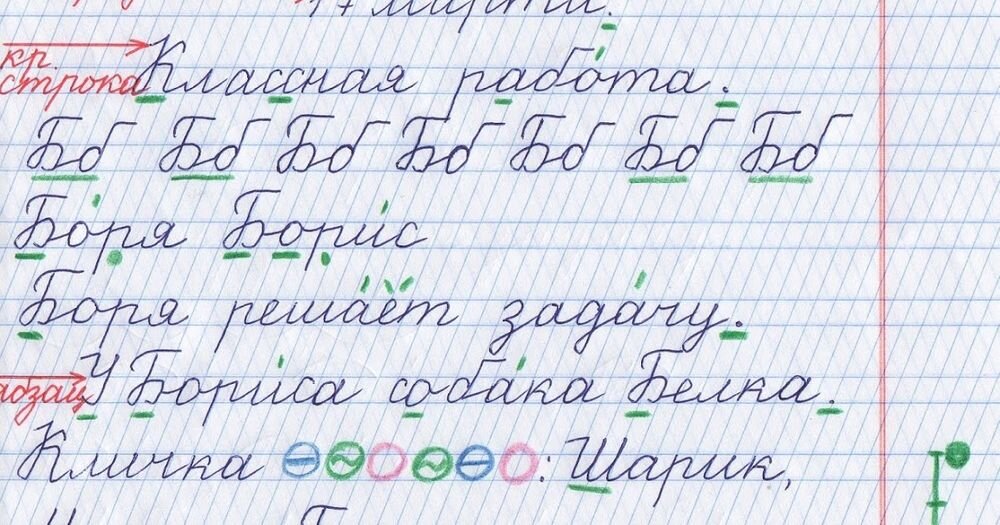 17 марта.
кр. строка Классная работа.
Бб Бб Бб Бб Бб Бб Бб
Боря Борис
Боря решает задачу.
абзац У Бориса собака Белка.
Кличка : Шарик,